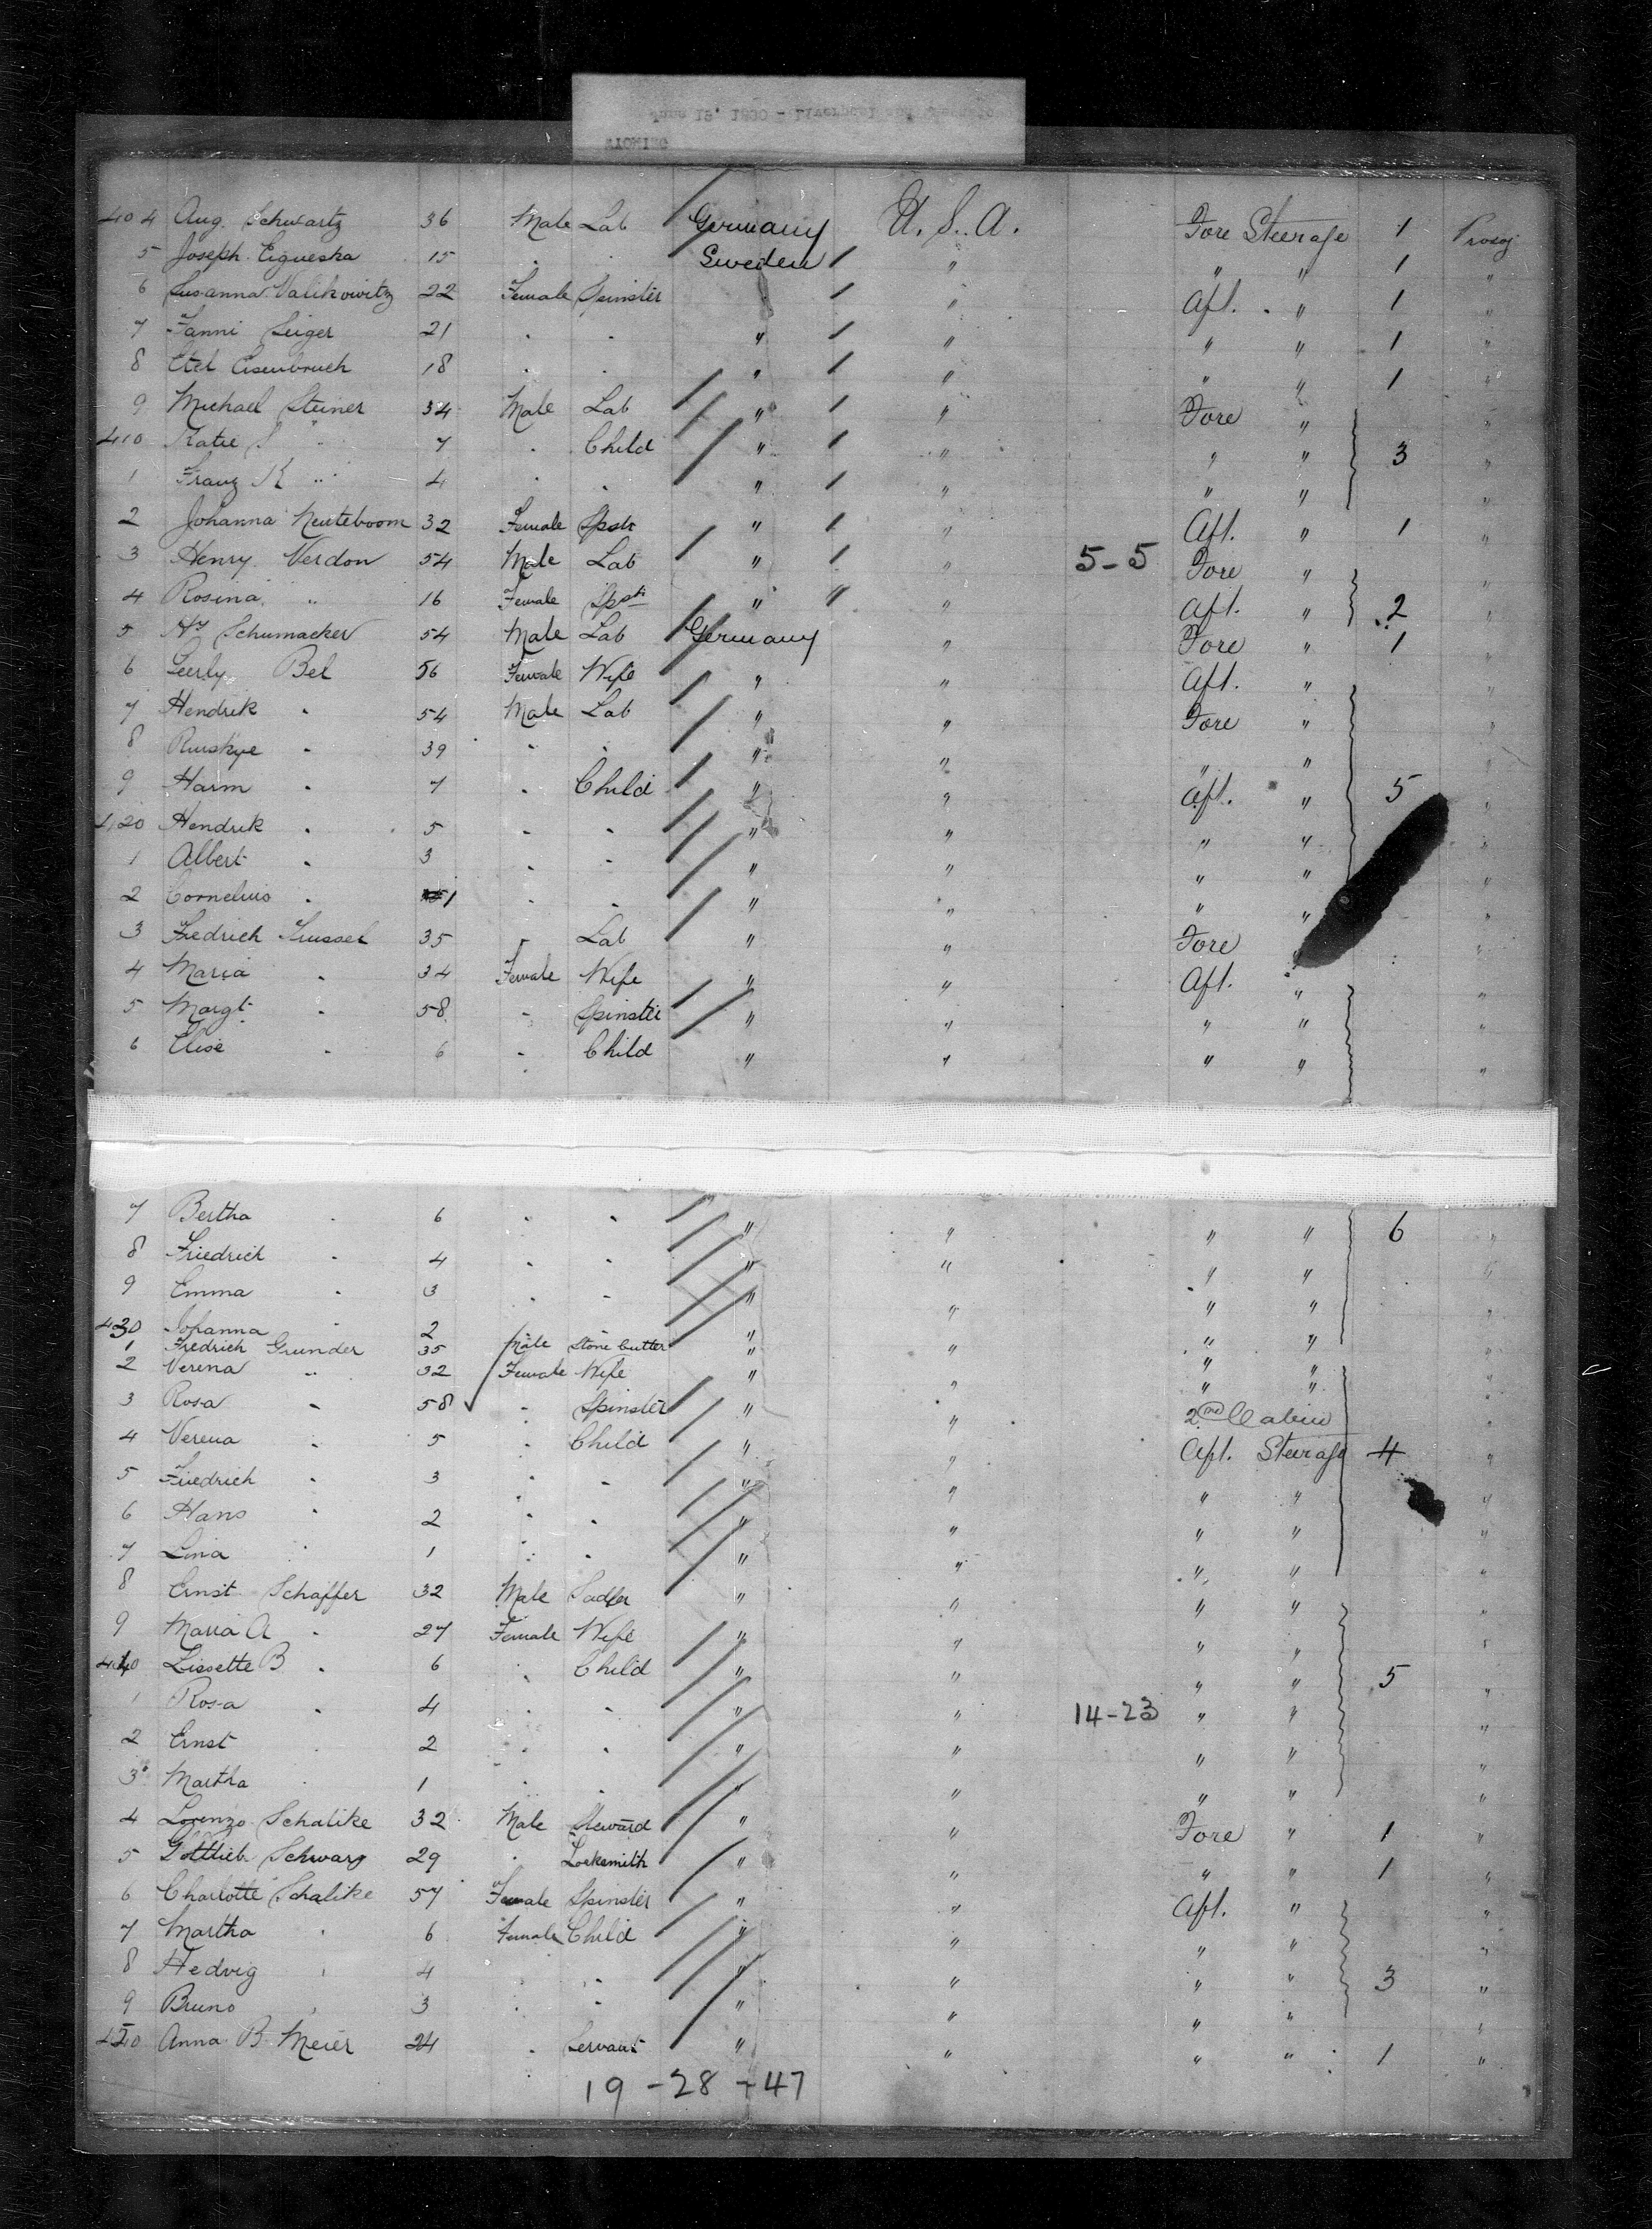 404 Aug. Schwartz 36 Male Lab Germany U. S. A. Fore Steerage 1
5 Joseph 15 . . Sweden " " " 1 "
6 Susanna Valikowitz 22 Female Spinster " Aft. " 1 "
7 Fanni Seiger 21 . . " " " " 1 "
8 Etel Eisenbruch 18 . . " " " " 1 "
9 Michael Steiner 34 Male Lab " " Fore " "
410 Katie S " 7 . Child " " " " 3 "
1 Franz K " 4 . . " " " " "
2 Johanna Neuteboom 32 Female Spstr " " Aft. " 1 "
3 Henry Verdon 54 Male Lab " " 5-5 Fore " "
4 Rosina " 16 Female Spstr " " Aft. " 2 "
5 Hy Schumacker 54 Male Lab Germany " Fore " 1 "
6 Bel 56 Female Wife " " Aft. " "
7 Hendrik " 54 Male Lab " " Fore " "
8 " 39 . . " " " " "
9 Harm " 7 . Child " " Aft. " 5 "
420 Hendrik " 5 . . " " " " "
1 Albert " 3 . . " " " " "
2 Cornelius " 1 . . " " " " "
3 Fredrich 35 " Lab " " Fore "
4 Maria " 34 Female Wife " " Aft. " "
5 Margt " 58 " Spinster " " " " "
6 Elise " 6 " Child " " " " "
7 Bertha " 6 . . " " " " 6 "
8 Friedrich " 4 . . " " " " "
9 Emma " 3 . . " " " " "
430 Johanna " 2 . " " " " "
1 Fredrich Grunder 35 Male Stone Cutter " " " " "
2 Verena " 32 Female Wife " " " " "
3 Rosa " 58 " Spinster " " 2nd Cabin
4 Verena " 5 " Child " " Aft. Steerage 4 "
5 Friedrich " 3 . . " " " " "
6 Hans " 2 . . " " " " "
7 Lina " 1 . . " " " " "
8 Ernst Schaffer 32 Male Sadler " " " " "
9 Maria A " 27 Female Wife " " " " "
440 Lissette B " 6 . Child " " " " 5 "
1 Rosa " 4 . . " " 14-23 " " "
2 Ernst 2 . . " " " " "
3 Martha 1 . . " " " " "
4 Lorenzo Schalike 32 Male Steward " " Fore " 1 "
5 Gottlieb Schwarz 29 " Locksmith " " " " 1 "
6 Charlotte Schalike 57 Female Spinster " " Aft. " "
7 Martha " 6 Female Child " " " " "
8 Hedvig " 4 . . " " " " 3 "
9 Bruno " 3 . . " " " " "
450 Anna B. Meier 24 . Servant " " " " 1 "
19 - 28 - 47